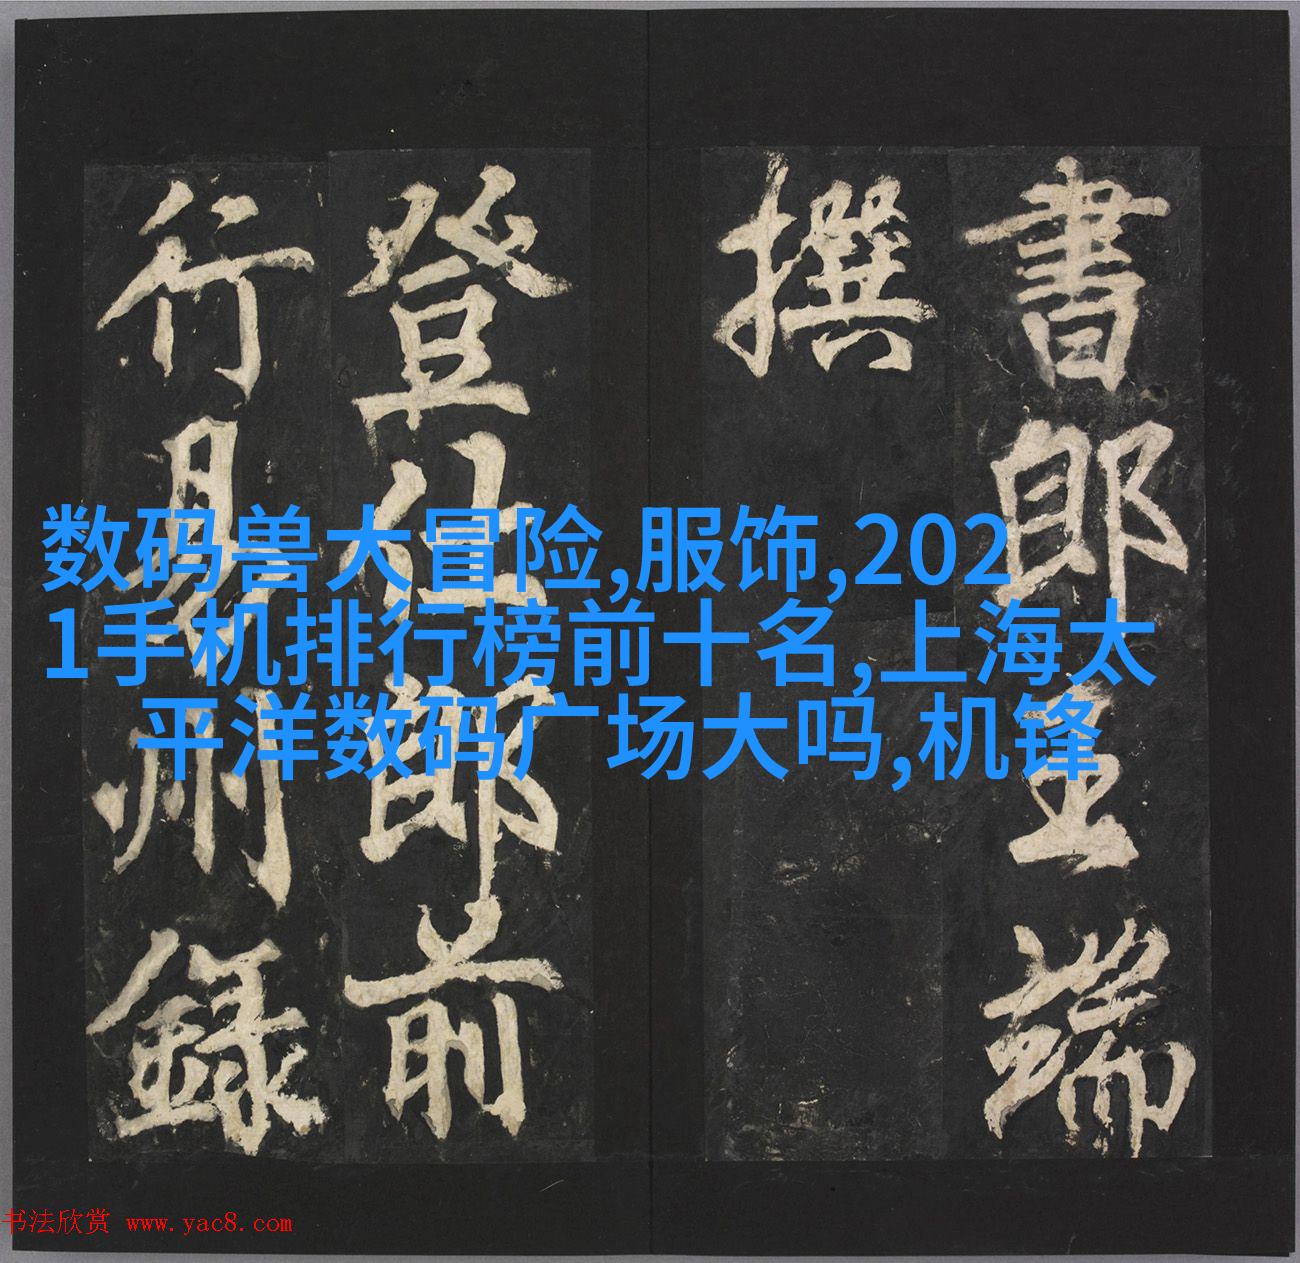 書郎王端
撰
登仕郎前
行易州錄
数码兽大冒险,服饰,202
1手机排行榜前十名,上海太
平洋数码广场大吗,机锋
书法欣赏 www.yac8.com